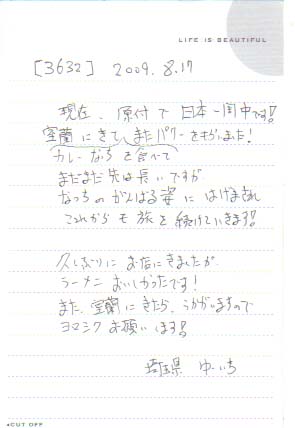 LIFE IS BEAUTIFUL
[3632] 2009.8.17
現在、原付で日本一周中です!!
室蘭にきて、またパワーをもらいました!
カレーなっちを食べて
まだまだ先は長いですが
なっちのがんばる姿にはげまされ
これからも旅を続けていきます!!
久しぶりにお店にきましたが
ラーメンおいしかったです!
また、室蘭にきたら、うかがいますので
ヨロシクお願いします!!
埼玉県 ゆういち
◂CUT OFF